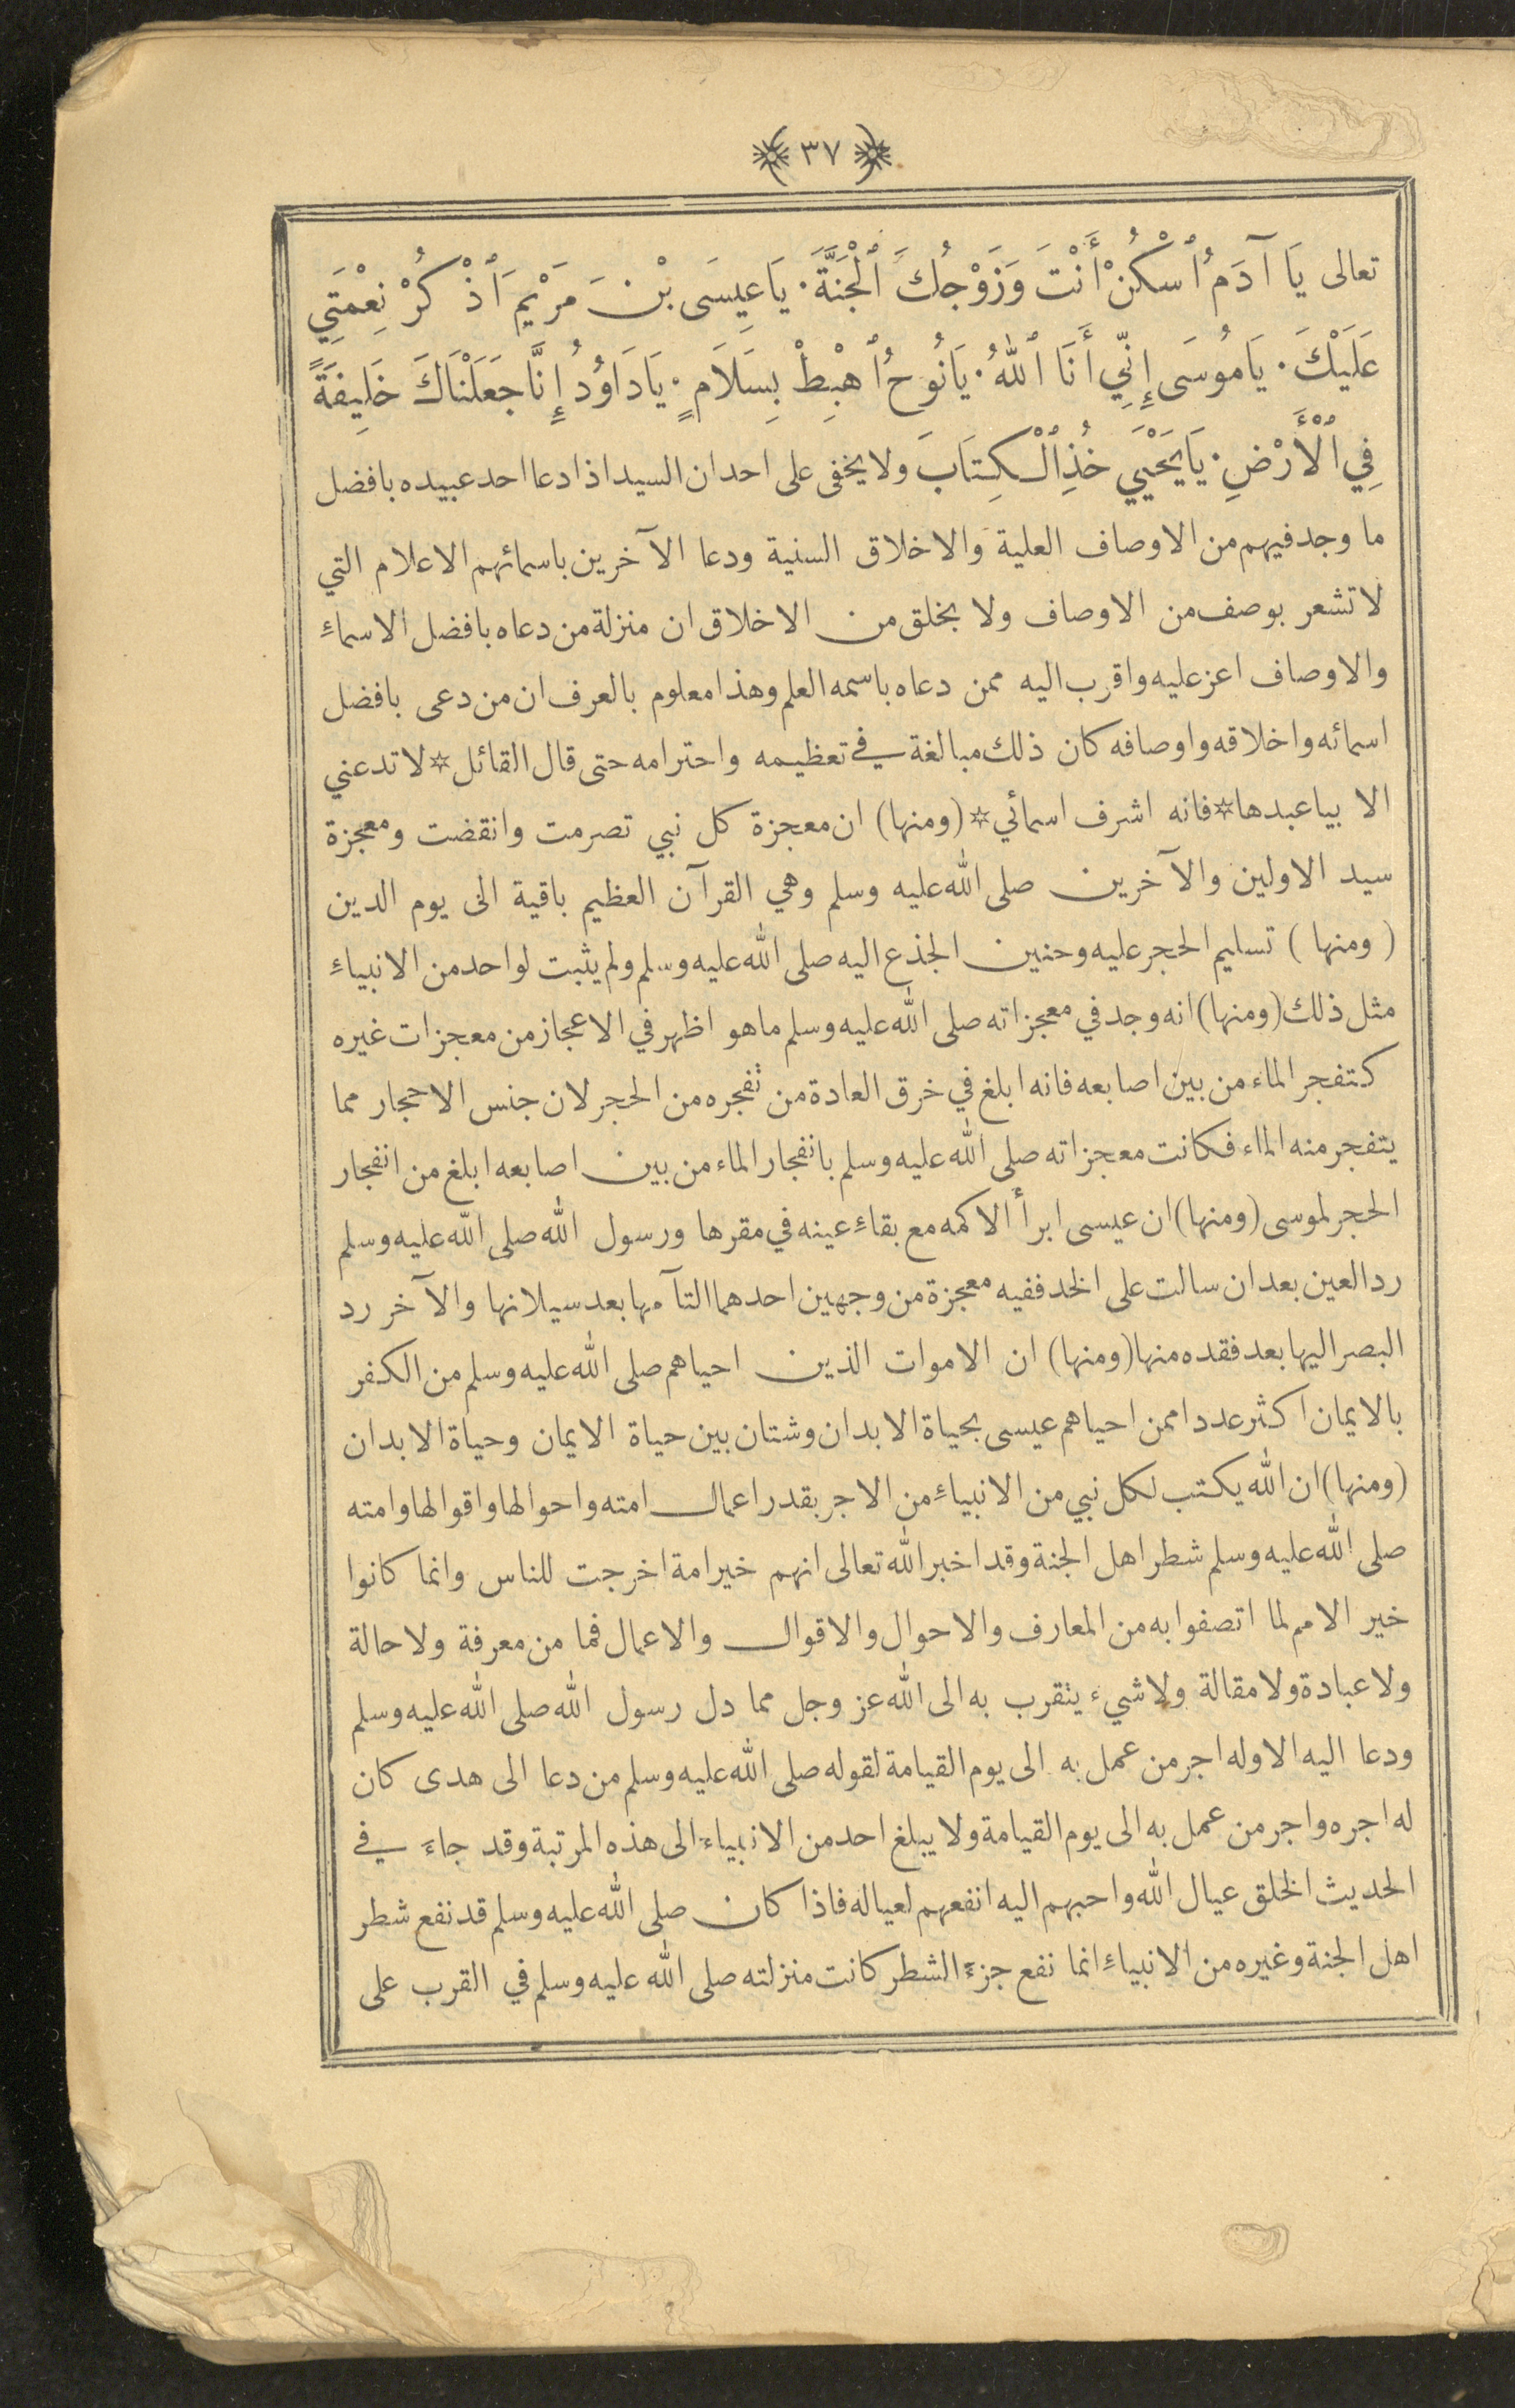 ٣٧
تعالى يَا آدَمُ ٱسْكُنْ أَنْتَ وَزَوْجُكَ ٱلْجَنَّةَ. يَا عِيسَى بْنَ مَرْيَمَ ٱذْكُرْ نِعْمَتِي
عَلَيْكَ. يَا مُوسَى إِنِّي أَنَا ٱللهُ. يَا نُوحُ ٱهْبِطْ بِسَلَامٍ. يَا دَاوُدُ إِنَّا جَعَلْنَاكَ خَلِيفَةً
فِي ٱلْأَرْضِ. يَا يَحْيَى خُذِ ٱلْكِتَابَ ولا يخفى على احد ان السيد اذا دعا احد عبيده بافضل
ما وجد فيهم من الاوصاف العلية والاخلاق السنية ودعا الآخرين باسمائهم الاعلام التي
لا تشعر بوصف من الاوصاف ولا بخلق من الاخلاق ان منزلة من دعاه بافضل الاسماءِ
والاوصاف اعز عليه واقرب اليه ممن دعاه باسمه العلم وهذا معلوم بالعرف ان من دعى بافضل
اسمائه واخلاقه واوصافه كان ذلك مبالغة في تعظيمه واحترامه حتى قال القائل * لا تدعني
الا بيا عبدها * فانه اشرف اسمائي * (ومنها) ان معجزة كل نبي تصرمت وانقضت ومعجزة
سيد الاولين والآخرين صلى الله عليه وسلم وهي القرآن العظيم باقية الى يوم الدين
( ومنها ) تسليم الحجر عليه وحنين الجذع اليه صلى الله عليه وسلم ولم يثبت لواحد من الانبياءِ
مثل ذلك (ومنها) انه وجد في معجزاته صلى الله عليه وسلم ما هو اظهر في الاعجاز من معجزات غيره
كتفجر الماء من بين اصابعه فانه ابلغ في خرق العادة من تفجره من الحجر لان جنس الاحجار مما
يتفجر منه الماء فكانت معجزاته صلى الله عليه وسلم بانفجار الماء من بين اصابعه ابلغ من انفجار
الحجر لموسى (ومنها) ان عيسى ابرأ الاكمه مع بقاءِ عينه في مقرها ورسول الله صلى الله عليه وسلم
رد العين بعد ان سالت على الخد ففيه معجزة من وجهين احدهما التآمها بعد سيلانها والآخر رد
البصر اليها بعد فقده منها (ومنها) ان الاموات الذين احياهم صلى الله عليه وسلم من الكفر
بالايمان اكثر عددا ممن احياهم عيسى بحياة الابدان وشتان بين حياة الايمان وحياة الابدان
(ومنها) ان الله يكتب لكل نبي من الانبياءِ من الاجر بقدر اعمال امته واحوالها واقوالها وامته
صلى الله عليه وسلم شطر اهل الجنة وقد اخبر الله تعالى انهم خير امة اخرجت للناس وانما كانوا
خير الامم لما اتصفوا به من المعارف والاحوال والاقوال والاعمال فما من معرفة ولا حالة
ولا عبادة ولا مقالة ولا شيء يتقرب به الى الله عز وجل مما دل رسول الله صلى الله عليه وسلم
ودعا اليه الا وله اجر من عمل به الى يوم القيامة لقوله صلى الله عليه وسلم من دعا الى هدى كان
له اجره واجر من عمل به الى يوم القيامة ولا يبلغ احد من الانبياء الى هذه المرتبة وقد جاءَ في
الحديث الخلق عيال الله واحبهم اليه انفعهم لعياله فاذا كان صلى الله عليه وسلم قد نفع شطر
اهل الجنة وغيره من الانبياءِ انما نفع جزءَ الشطر كانت منزلته صلى الله عليه وسلم في القرب على